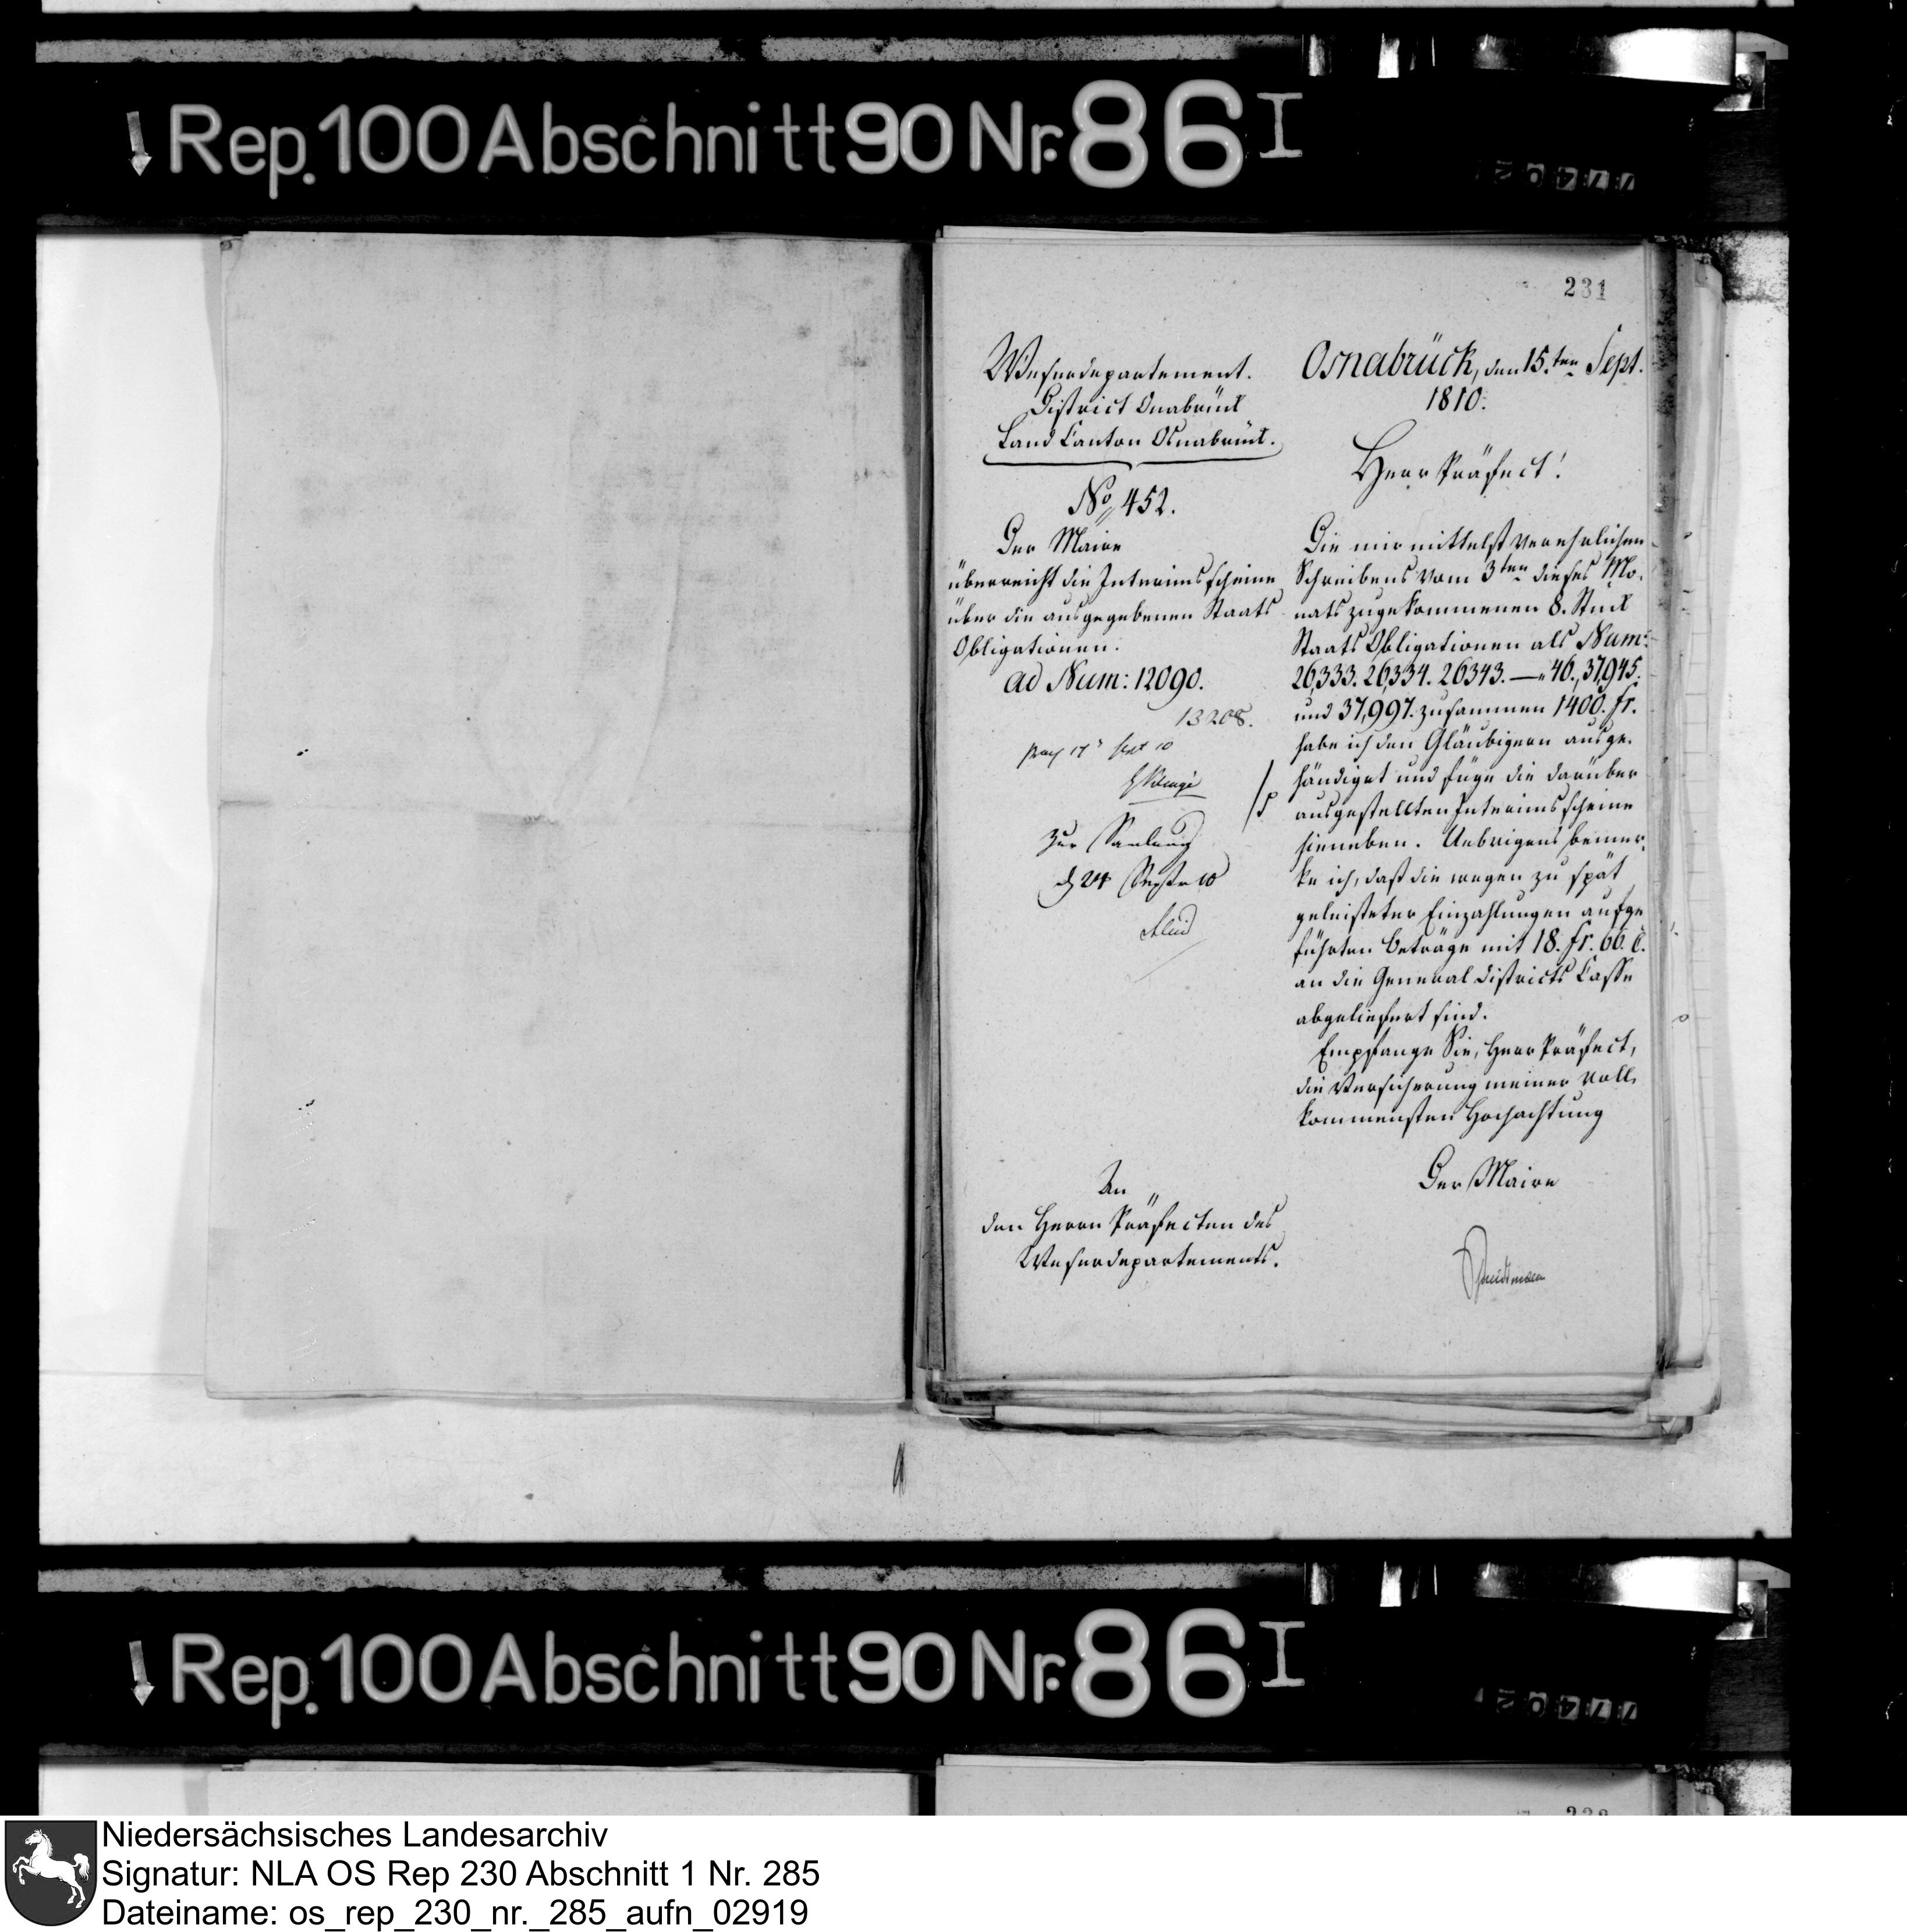 Rep. 100 Abschnitt 90 Nr. 86 I
231
Weserdepartement.
District Osnabrück
Land Canton Osnabrück.
No. 452.
Der Maire
überreicht die Interimsscheine
über die ausgegebenen Staats
Obligationen.
ad Num: 12090.
13208.
17 Sept 10
Zur Samlung
d 24 Septr 10
An
den Herrn Präfecten des
Weserdepartements.
Osnabrück, den 15.ten Sept.
1810.
Herr Präfect!
Die mir mittelst verehrlichen
Schreibens vom 3ten dieses Mo-
nats zugekommenen 8. Stück
Staats Obligationen als Num:
26,333. 26,334. 26343. — " 46., 37,945.
und 37,997. zusammen 1400. fr.
habe ich den Gläubigern ausge-
händiget und füge die darüber
ausgestellten Interimsscheine
hieneben. Uebrigens bemer-
ke ich, daß die wegen zu spät
geleisteter Einzahlungen aufge
führten Beträge mit 18. fr. 66. c.
an die General Districts Casse
abgeliefert sind.
Empfange Sie, Herr Präfect,
die Versicherung meiner voll-
kommensten Hochachtung
Der Maire
Rep. 100 Abschnitt 90 Nr. 86 I
Niedersächsisches Landesarchiv
Signatur: NLA OS Rep 230 Abschnitt 1 Nr. 285
Dateiname: os_rep_230_nr._285_aufn_02919